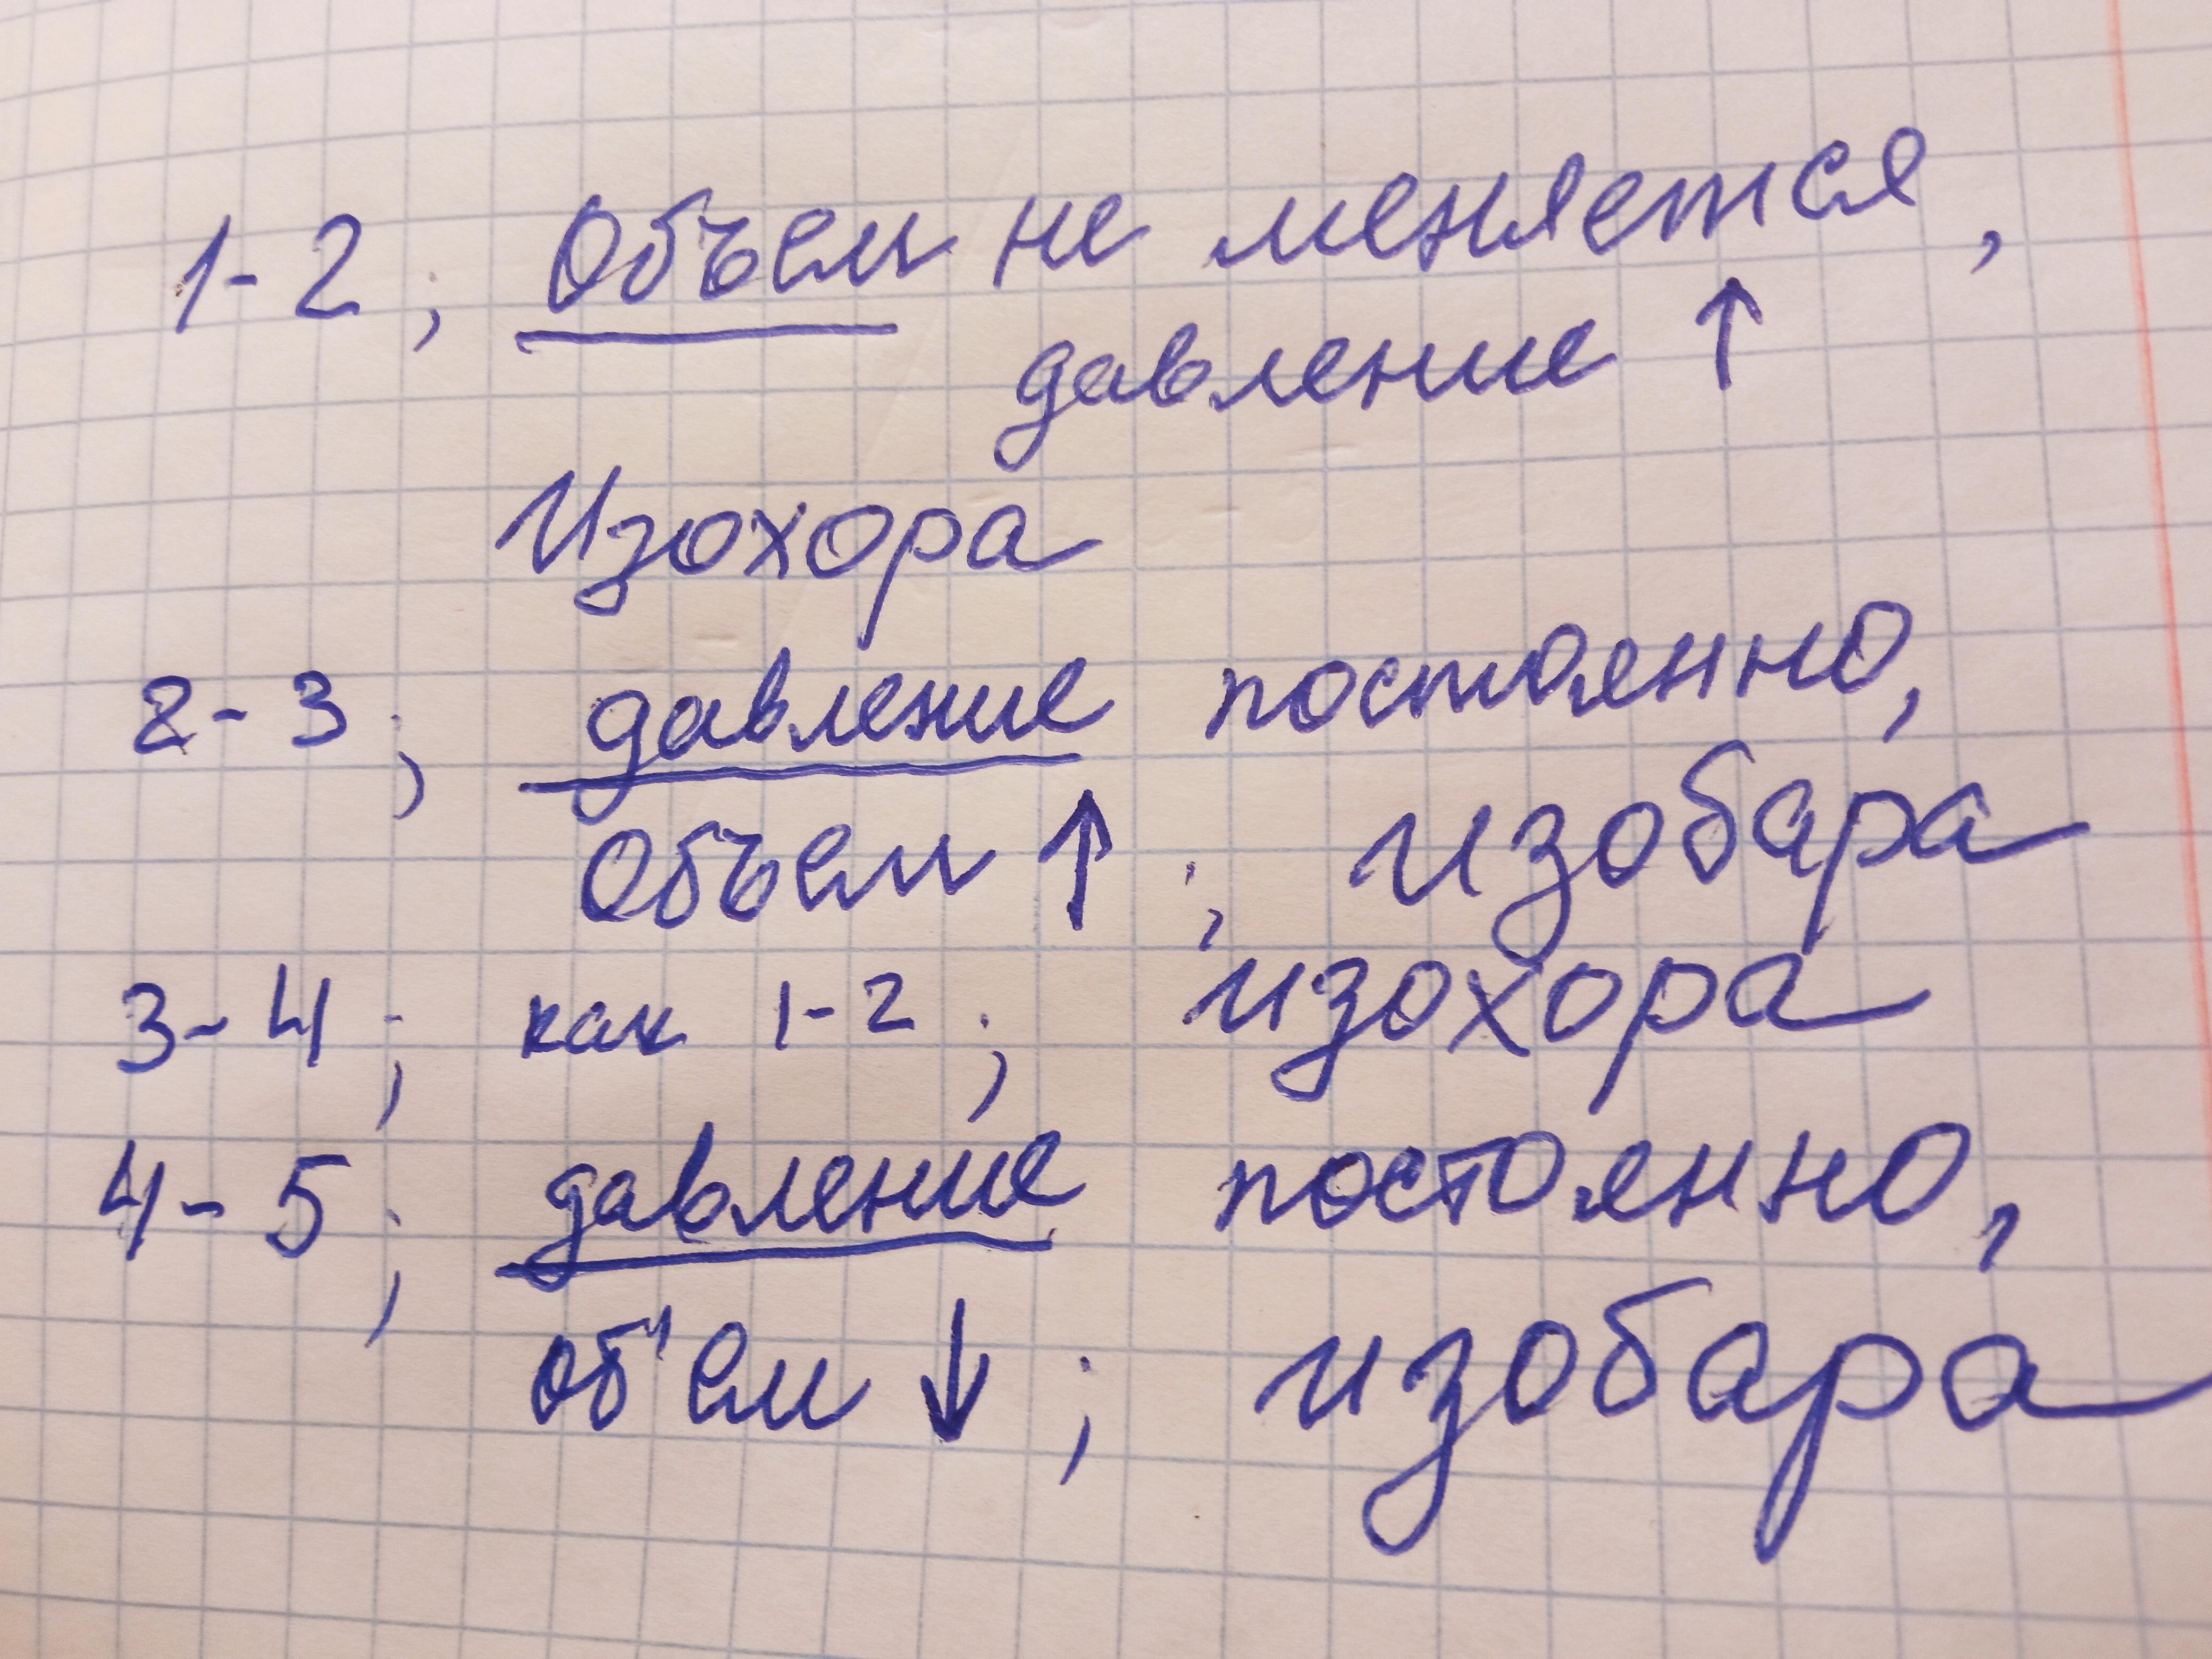 1-2; Объем не меняется,
давление ↑
Изохора
2-3; давление постоянно,
Объем ↑; изобара
3-4; как 1-2; изохора
4-5; давление постоянно,
об'ем ↓; изобара